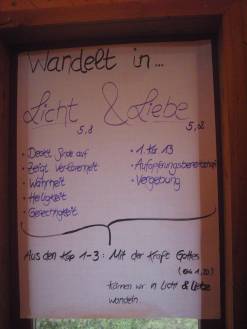 Wandelt in...
Licht & Liebe
5,8 5,2
• Deckt Sünde auf
• Zeigt Verlorenheit
• Wahrheit
• Heiligkeit
• Gerechtigkeit
• 1. Ko 13
• Aufopferungsbereitschaft
• Vergebung
Aus den Kap 1-3: Mit der Kraft Gottes
(Eph 1,20)
können wir in Licht & Liebe
wandeln.